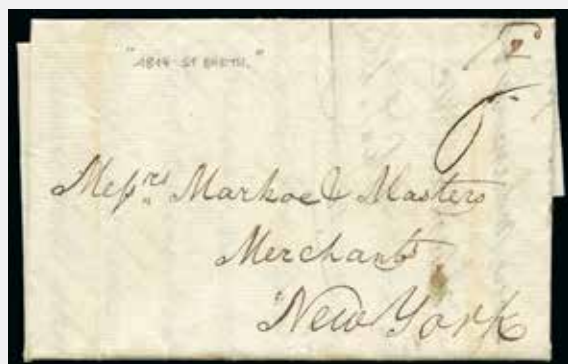 "1814 - ST BARTH."
2
6
Messrs Markoe & Masters
Merchants
New York